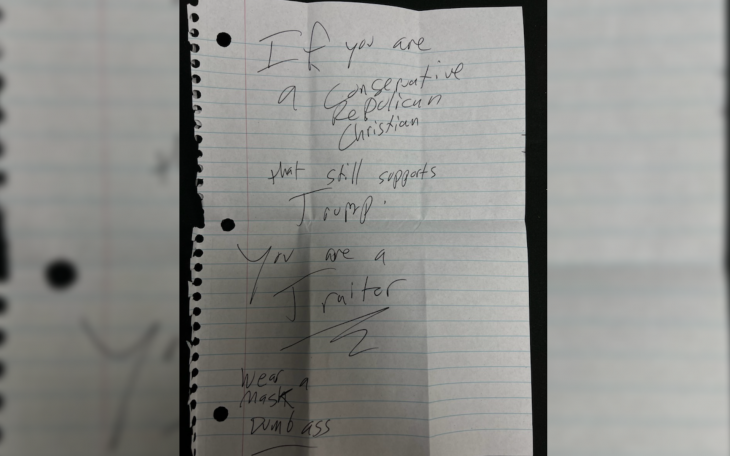 If you are
a Conservative
Repulican
Christian
that still supports
Trump.
You are a
Traitor
Wear a
mask
Dumb ass